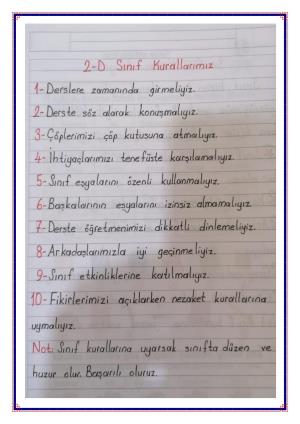 2-D Sınıf Kurallarımız
1- Derslere zamanında girmeliyiz.
2- Derste söz alarak konuşmalıyız.
3- Çöplerimizi çöp kutusuna atmalıyız.
4- İhtiyaçlarımızı teneffüste karşılamalıyız.
5- Sınıf eşyalarını özenli kullanmalıyız.
6- Başkalarının eşyalarını izinsiz almamalıyız.
7- Derste öğretmenimizi dikkatli dinlemeliyiz.
8- Arkadaşlarımızla iyi geçinmeliyiz.
9- Sınıf etkinliklerine katılmalıyız.
10- Fikirlerimizi açıklarken nezaket kurallarına
uymalıyız.
Not: Sınıf kurallarına uyarsak sınıfta düzen ve
huzur olur. Başarılı oluruz.